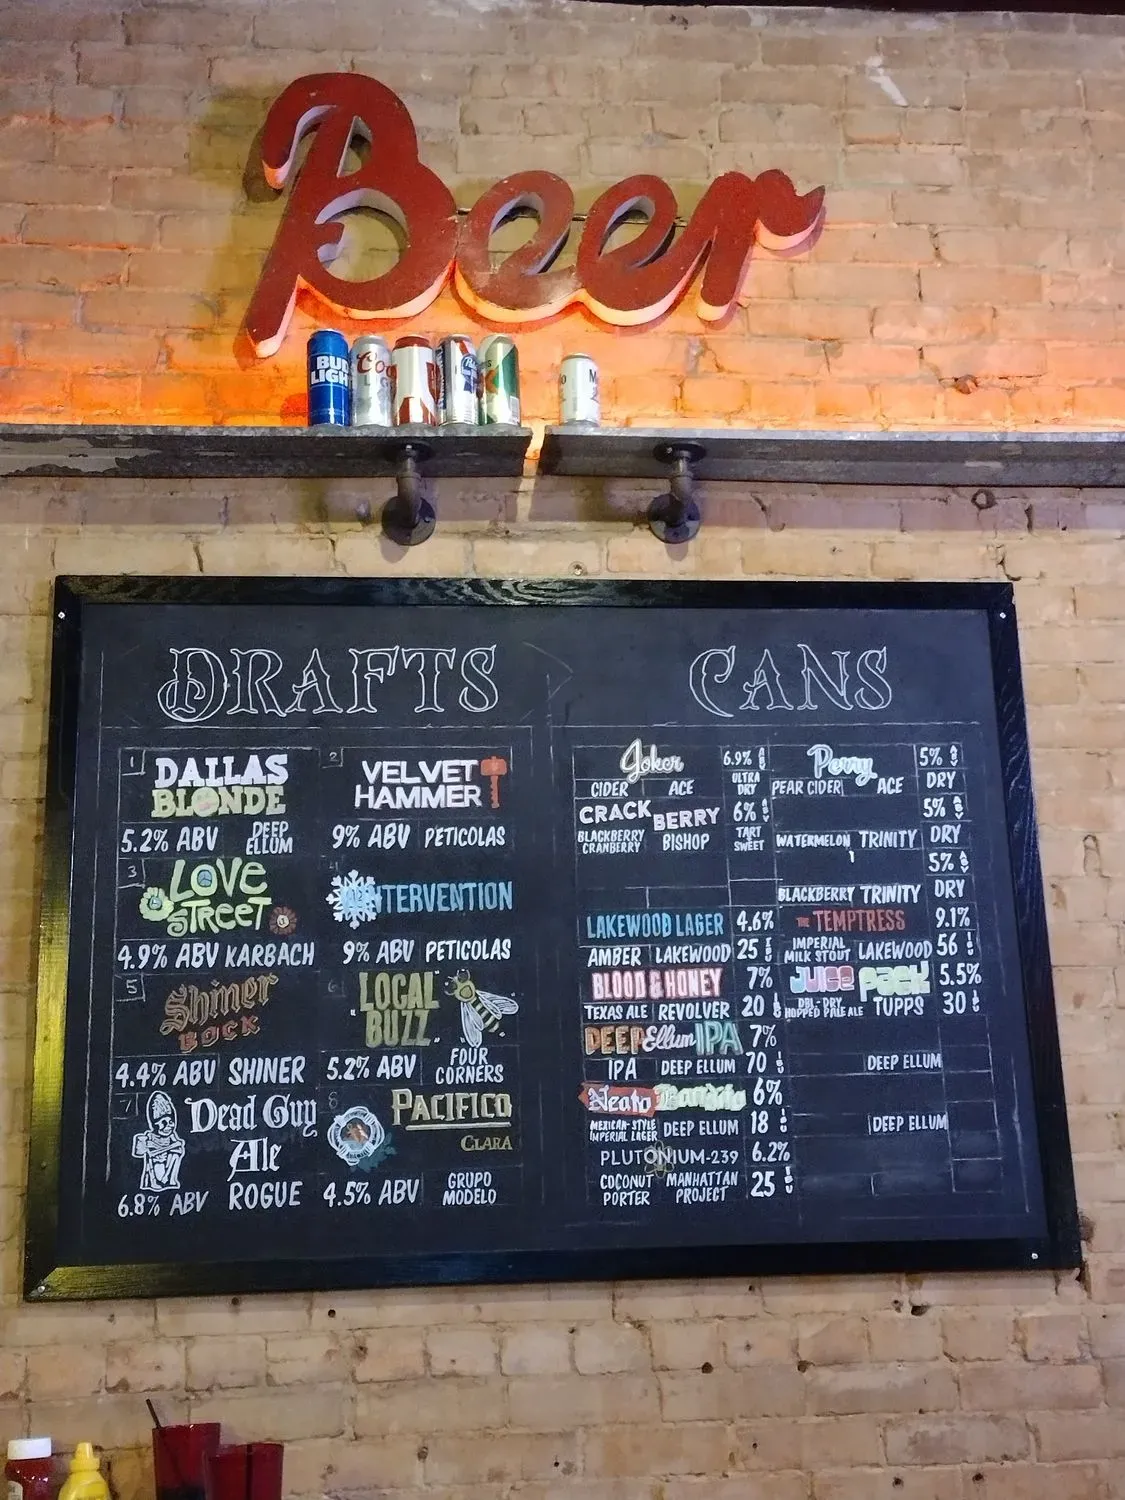 Beer
BUD
LIGHT
DRAFTS
1
DALLAS
BLONDE
5.2% ABV DEEP ELLUM
2
VELVET
HAMMER
9% ABV PETICOLAS
3
LOVE
STREET
4.9% ABV KARBACH
4
WINTERVENTION
9% ABV PETICOLAS
5
Shiner
BOCK
4.4% ABV SHINER
6
LOCAL
BUZZ
5.2% ABV FOUR CORNERS
7
Dead Guy
Ale
6.8% ABV ROGUE
8
PACIFICO
CLARA
4.5% ABV GRUPO MODELO
CANS
Joker 6.9% ABV
CIDER ACE ULTRA DRY
CRACK BERRY 6% ABV
BLACKBERRY CRANBERRY BISHOP TART SWEET
LAKEWOOD LAGER 4.6%
AMBER LAKEWOOD 25 IBU
BLOOD & HONEY 7%
TEXAS ALE REVOLVER 20
DEEP Ellum IPA 7%
IPA DEEP ELLUM 70
Neato Bandito 6%
MEXICAN-STYLE IMPERIAL LAGER DEEP ELLUM 18
PLUTONIUM-239 6.2%
COCONUT PORTER MANHATTAN PROJECT 25
Perry 5% ABV
PEAR CIDER ACE DRY
5% ABV
WATERMELON TRINITY DRY
5% ABV
BLACKBERRY TRINITY DRY
THE TEMPTRESS 9.1%
IMPERIAL MILK STOUT LAKEWOOD 56
JUICE PACK 5.5%
DBL-DRY HOPPED PALE ALE TUPPS 30
DEEP ELLUM
DEEP ELLUM